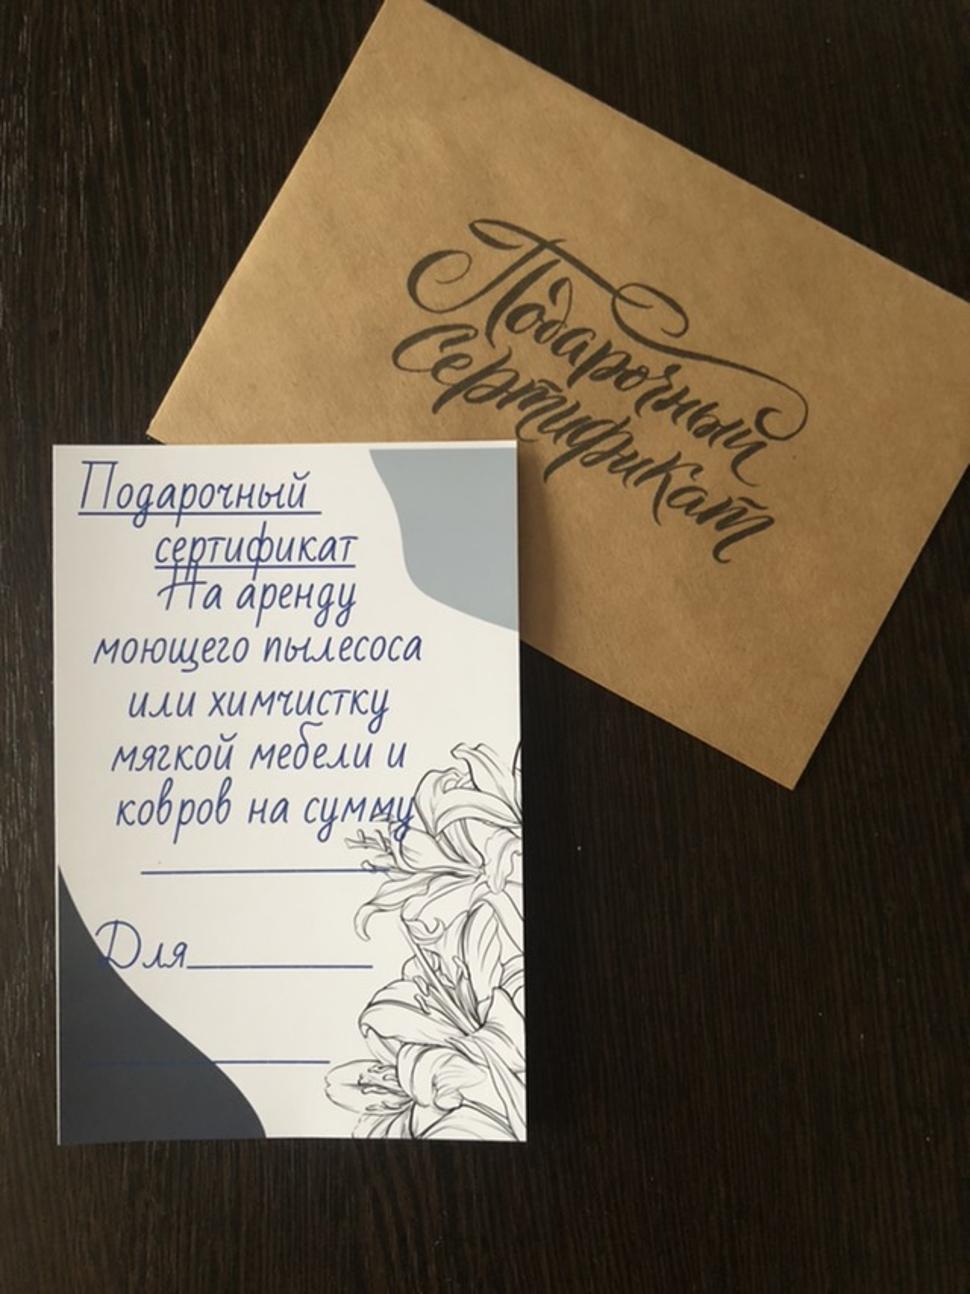 Подарочный
сертификат
Подарочный
сертификат
На аренду
моющего пылесоса
или химчистку
мягкой мебели и
ковров на сумму
Для